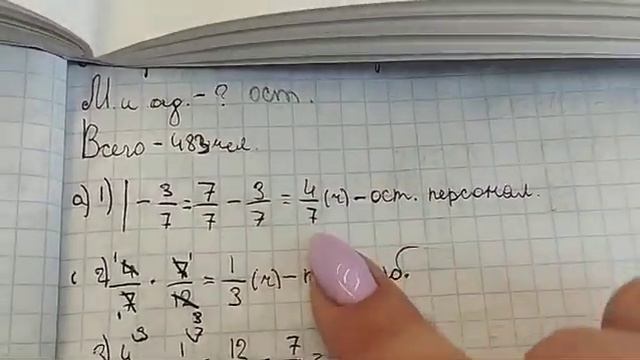 М. и ад. - ? ост.
Всего - 483 чел.
а) 1) 1 - 3/7 = 7/7 - 3/7 = 4/7 (ч) - ост. персонал.
2) 4/7 · 7/12 = 1/3 (ч) -
3) 4 1 12 7